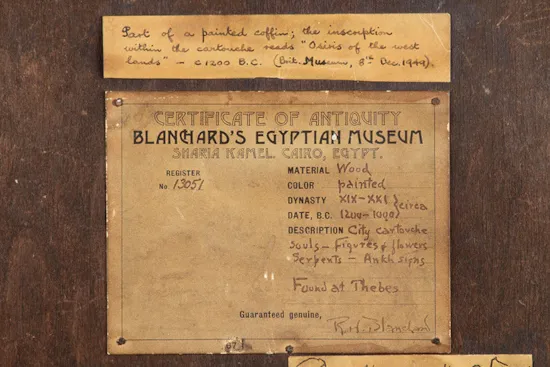 Part of a painted coffin; the inscription
within the cartouche reads "Osiris of the west
lands" – c 1200 B.C. (Brit. Museum, 8th Dec. 1949).
CERTIFICATE OF ANTIQUITY
BLANCHARD'S EGYPTIAN MUSEUM
SHARIA KAMEL. CAIRO, EGYPT.
REGISTER
No 13051
MATERIAL Wood
COLOR painted
DYNASTY XIX-XXI
DATE, B.C. 1200-1000 } circa
DESCRIPTION City cartouche
souls – Figures & flowers
Serpents – Ankh signs
Found at Thebes
Guaranteed genuine,
R.H. Blanchard